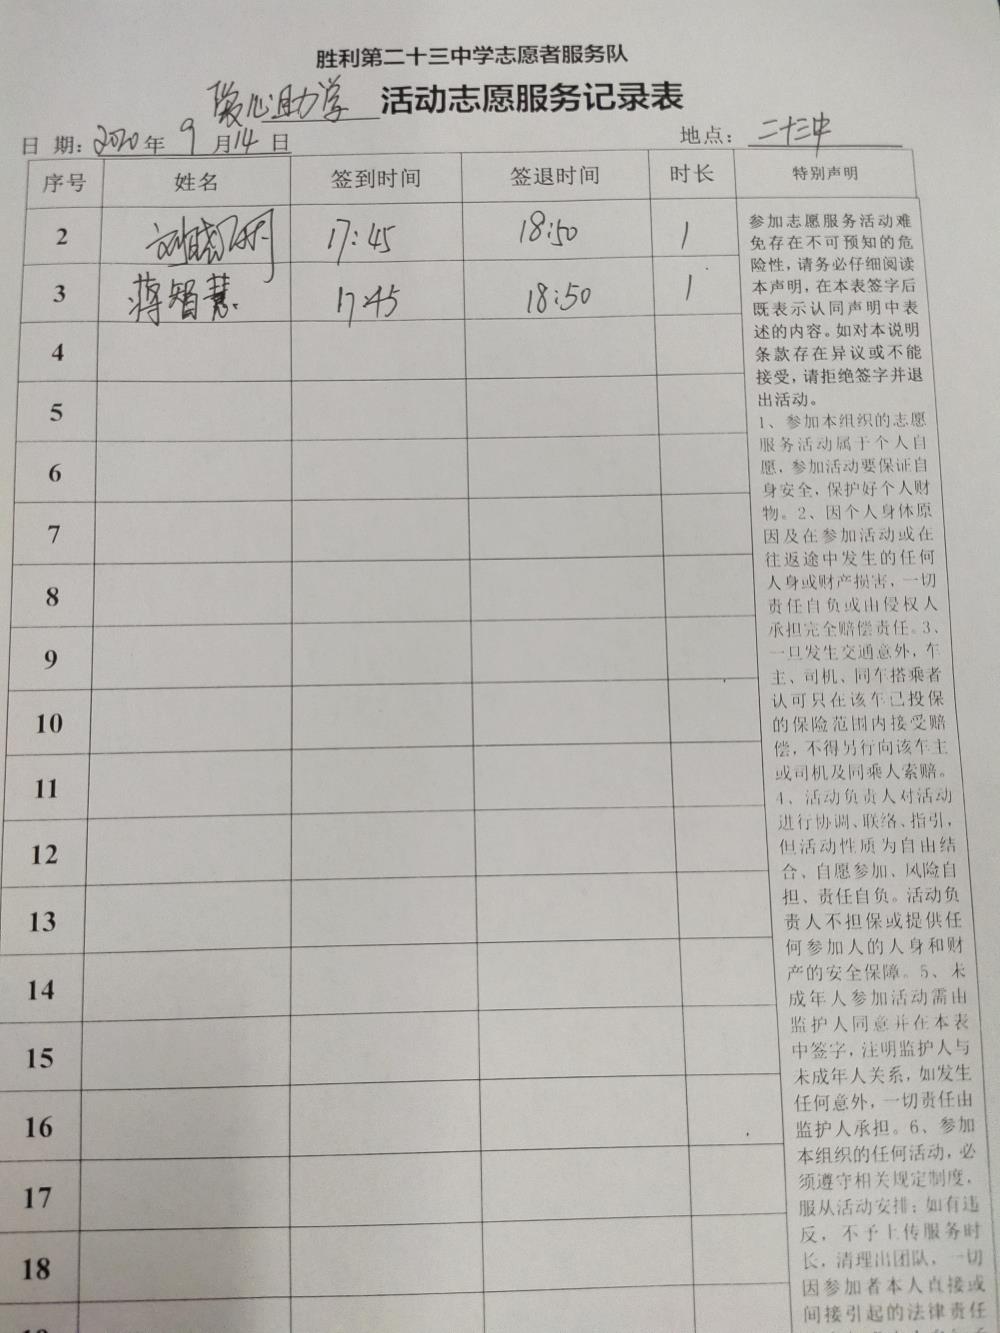 胜利第二十三中学志愿者服务队
爱心助学 活动志愿服务记录表
日 期: 2020年 9 月14日 地点: 二十三中
序号 姓名 签到时间 签退时间 时长 特别声明
2 17:45 18:50 1
3 蒋智慧 17:45 18:50 1
4
5
6
7
8
9
10
11
12
13
14
15
16
17
18
参加志愿服务活动难
免存在不可预知的危
险性,请务必仔细阅读
本声明,在本表签字后
既表示认同声明中表
述的内容。如对本说明
条款存在异议或不能
接受,请拒绝签字并退
出活动。
1、参加本组织的志愿
服务活动属于个人自
愿,参加活动要保证自
身安全,保护好个人财
物。2、因个人身体原
因及在参加活动或在
往返途中发生的任何
人身或财产损害,一切
责任自负或由侵权人
承担完全赔偿责任。3、
一旦发生交通意外,车
主、司机、同车搭乘者
认可只在该车已投保
的保险范围内接受赔
偿,不得另行向该车主
或司机及同乘人索赔。
4、活动负责人对活动
进行协调、联络、指引,
但活动性质为自由结
合、自愿参加、风险自
担、责任自负。活动负
责人不担保或提供任
何参加人的人身和财
产的安全保障。5、未
成年人参加活动需由
监护人同意并在本表
中签字,注明监护人与
未成年人关系,如发生
任何意外,一切责任由
监护人承担。6、参加
本组织的任何活动,必
须遵守相关规定制度,
服从活动安排;如有违
反,不予上传服务时
长,清理出团队,一切
因参加者本人直接或
间接引起的法律责任